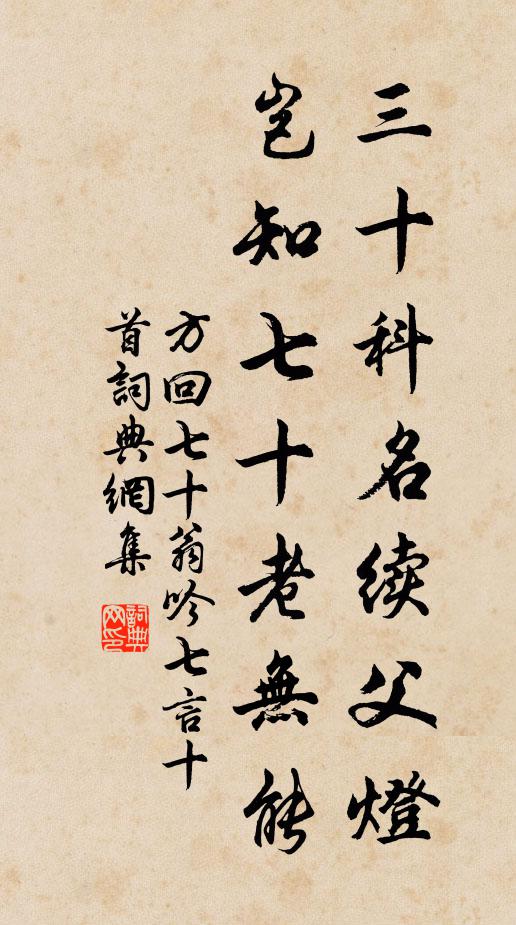 三十科名续父燈
岂知七十老無能
方回七十翁吟七言十
首詞典網集
詞典网印